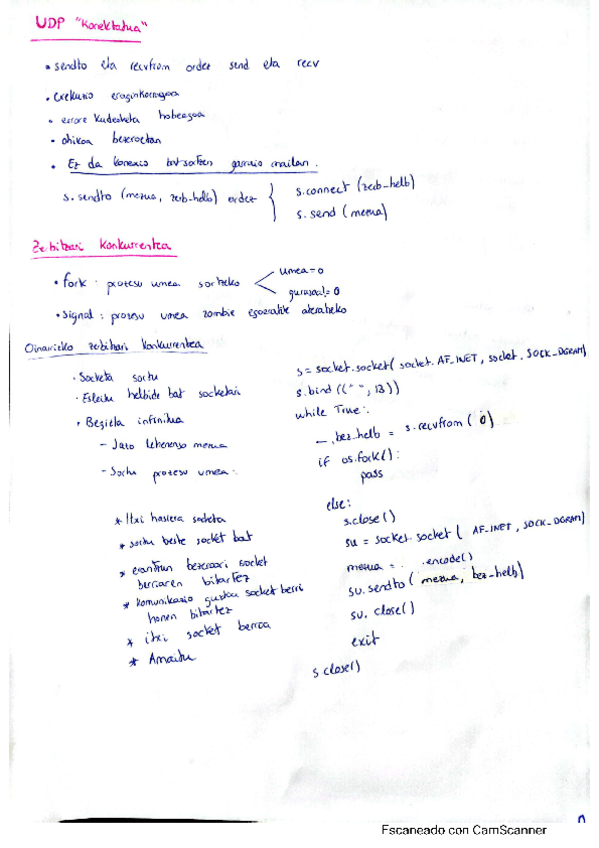 UDP "Konektatua"
• sendto eta recvfrom ordez send eta recv
• exekuzio eraginkorragoa
• errore kudeaketa hobeagoa
• ohikoa bezeroetan
• Ez da konexio bat sortzen garraio mailan.
s.sendto (mezua, zerb_helb) ordez { s.connect (zerb_helb)
s.send (mezua)
Zerbitzari konkurrentea
• fork : prozesu umea sortzeko < umea=0
gurasoa!=0
• signal : prozesu umea zombie egoeratik ateratzeko
Oinarrizko zerbitzari konkurrentea
• Socketa sortu
• Esleitu helbide bat socketari
• Begizta infinitua
- Jaso lehenengo mezua
- Sortu prozesu umea:
* Itxi hasiera socketa
* sortu beste socket bat
* erantzun bezeroari socket
berriaren bitartez
* komunikazio guztia socket berri
honen bitartez
* itxi socket berria
* Amaitu
s = socket.socket( socket.AF_INET, socket.SOCK_DGRAM)
s.bind (("", 13))
while True:
_, bez_helb = s.recvfrom ( 0 )
if os.fork():
pass
else:
s.close()
su = socket.socket ( AF_INET, SOCK_DGRAM)
mezua = .encode()
su.sendto( mezua, bez_helb)
su. close()
exit
s close()
Escaneado con CamScanner